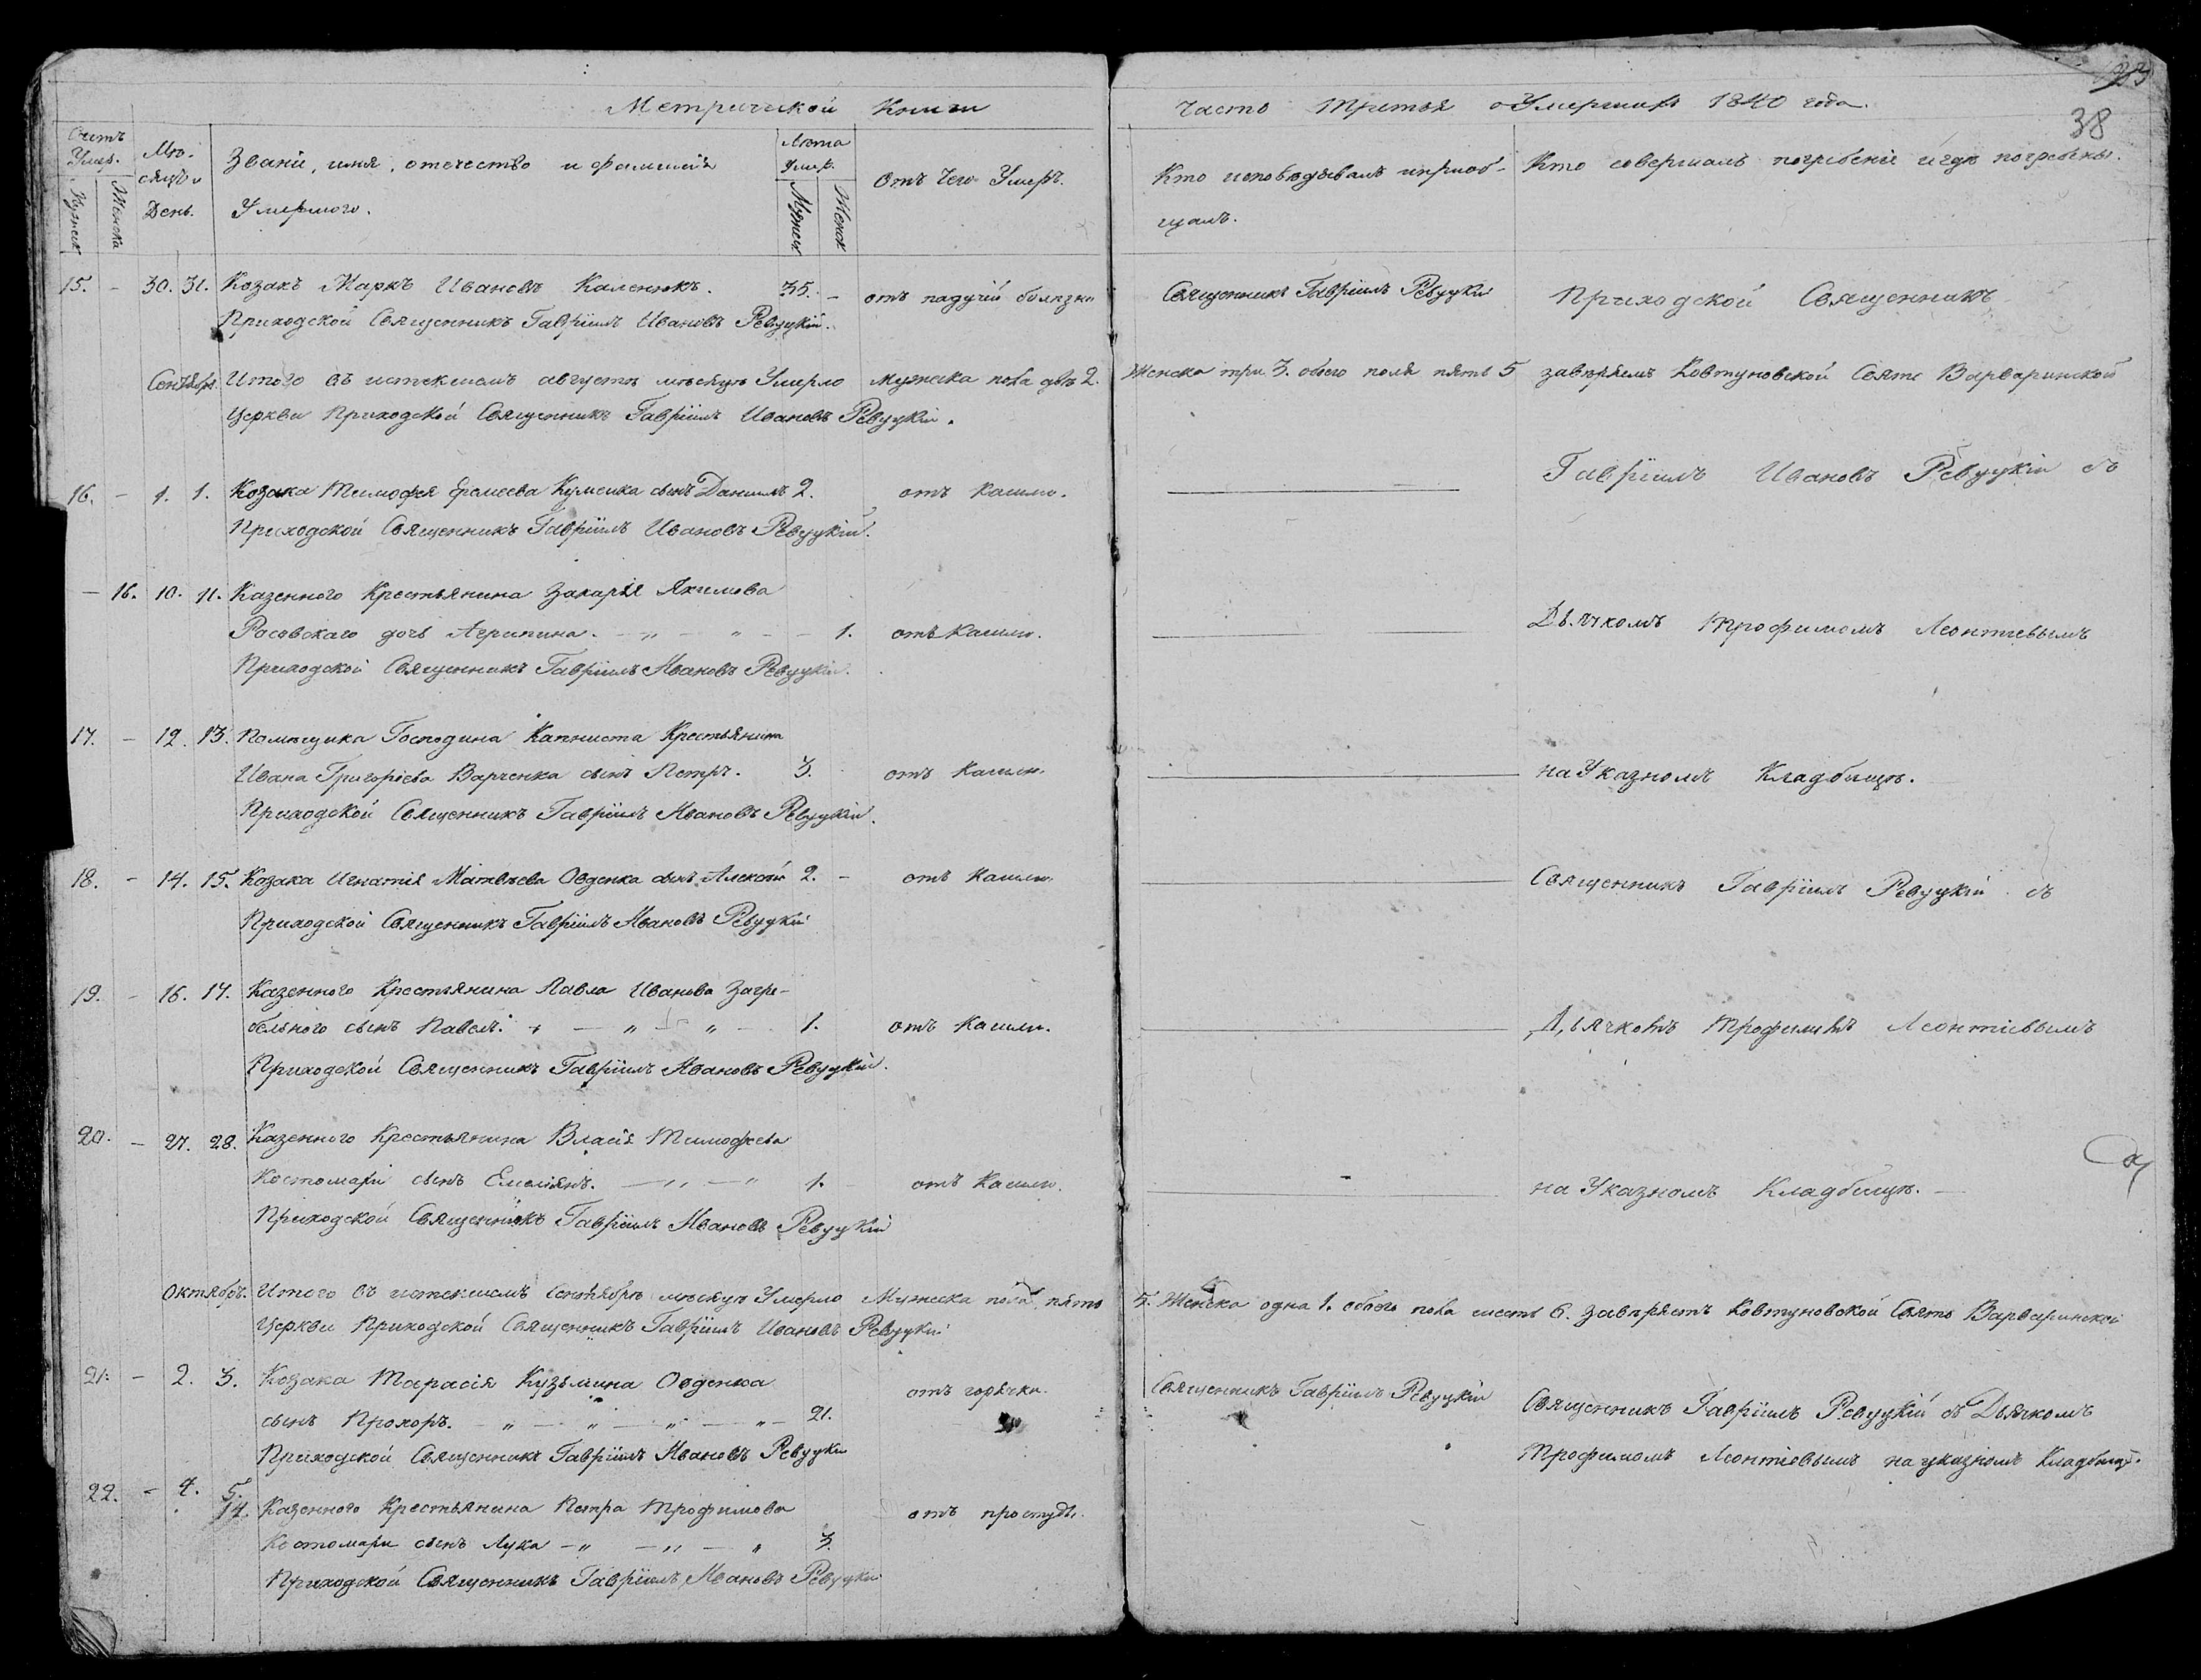 Метрической Книги
Часть Третья о Умершихъ 1840 года.
38
Счетъ Умер.
Мужеск
Женска
Мѣ-
сяцъ и
День.
Званіе, имя, отечество и фамилія
Умершого.
Лѣта
Умер.
Мужеск
Женск
Отъ чего Умеръ.
Кто исповѣдывалъ и приоб-
щалъ.
Кто совершалъ погребеніе и гдѣ погребены.
15. - 30. 31. Козакъ Маркъ Ивановъ Каленикъ. 35. - отъ падучій болѣзни Священникъ Гавріилъ Ревуцкій Приходской Священникъ
Приходской Священникъ Гавріилъ Ивановъ Ревуцкій.
Сентябрь. Итого въ истекшомъ августѣ мѣсяцѣ Умерло Мужеска пола два 2. Женска три 3. обоего пола пять 5 завѣряемъ Ковтуновской Свято Варваринской
Церкви Приходской Священникъ Гавріилъ Ивановъ Ревуцкій.
16. - 1. 1. Козака Тимофея Еремеева Куменка сынъ Даниилъ 2. отъ Кашлю. Гавріилъ Ивановъ Ревуцкій съ
Приходской Священникъ Гавріилъ Ивановъ Ревуцкій.
- 16. 10. 11. Казенного Крестьянина Захарія Якимова
Росовскаго дочь Агрипина. - „ - „ - - 1. отъ Кашлю. Дьячкомъ Трофимомъ Леонтіевымъ
Приходской Священникъ Гавріилъ Ивановъ Ревуцкій.
17. - 12. 13. Помѣщика Господина Капниста Крестьянина
Ивана Григоріева Варченка сынъ Петръ. 3. отъ Кашлю. на Указномъ Кладбищѣ.
Приходской Священникъ Гавріилъ Ивановъ Ревуцкій.
18. - 14. 15. Козака Игнатія Матвѣева Овденка сынъ Алексѣй 2. - отъ Кашлю. Священникъ Гавріилъ Ревуцкій съ
Приходской Священникъ Гавріилъ Ивановъ Ревуцкій
19. - 16. 17. Казенного Крестьянина Павла Иванова Загре-
бельного сынъ Павелъ. - „ - „ - 1. отъ Кашлю. Дьячкомъ Трофимомъ Леонтіевымъ
Приходской Священникъ Гавріилъ Ивановъ Ревуцкій.
20. - 27. 28. Казенного Крестьянина Власія Тимофеева
Костомари сынъ Емеліянъ. - „ - „ 1. отъ Кашлю. на Указномъ Кладбищѣ. -
Приходской Священникъ Гавріилъ Ивановъ Ревуцкій
Октябрь. Итого въ истекшомъ Сентябрѣ мѣсяцѣ Умерло Мужеска пола пять 5. Женска одна 1. обоего пола шесть 6. завѣряетъ Ковтуновской Свято Варваринской
Церкви Приходской Священникъ Гавріилъ Ивановъ Ревуцкій
21. - 2. 3. Козака Тарасія Кузьмина Овденка отъ горячки. Священникъ Гавріилъ Ревуцкій Священникъ Гавріилъ Ревуцкій съ Дьячкомъ
сынъ Прохоръ. - „ - „ - „ - „ - 21.
Приходской Священникъ Гавріилъ Ивановъ Ревуцкій Трофимомъ Леонтіевымъ на указномъ Кладбищѣ.
22. - 4. 5. Казенного Крестьянина Петра Трофимова отъ простуды.
Костомари сынъ Лука - „ - „ - „ 3.
Приходской Священникъ Гавріилъ Ивановъ Ревуцкій